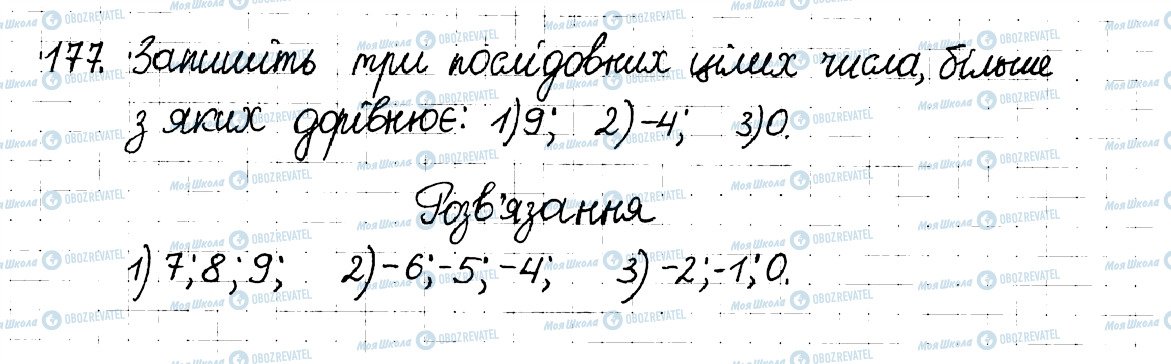 177. Запишіть три послідовних цілих числа, більше
з яких дорівнює: 1) 9; 2) -4; 3) 0.
Розв'язання
1) 7; 8; 9; 2) -6; -5; -4; 3) -2; -1; 0.